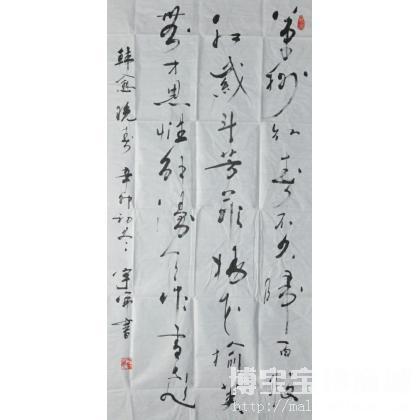 草树知春不久归百般
红紫斗芳菲杨花榆荚
無才思惟解漫天作雪飞
韓愈晚春 辛卯初冬 書
博宝
http://mal